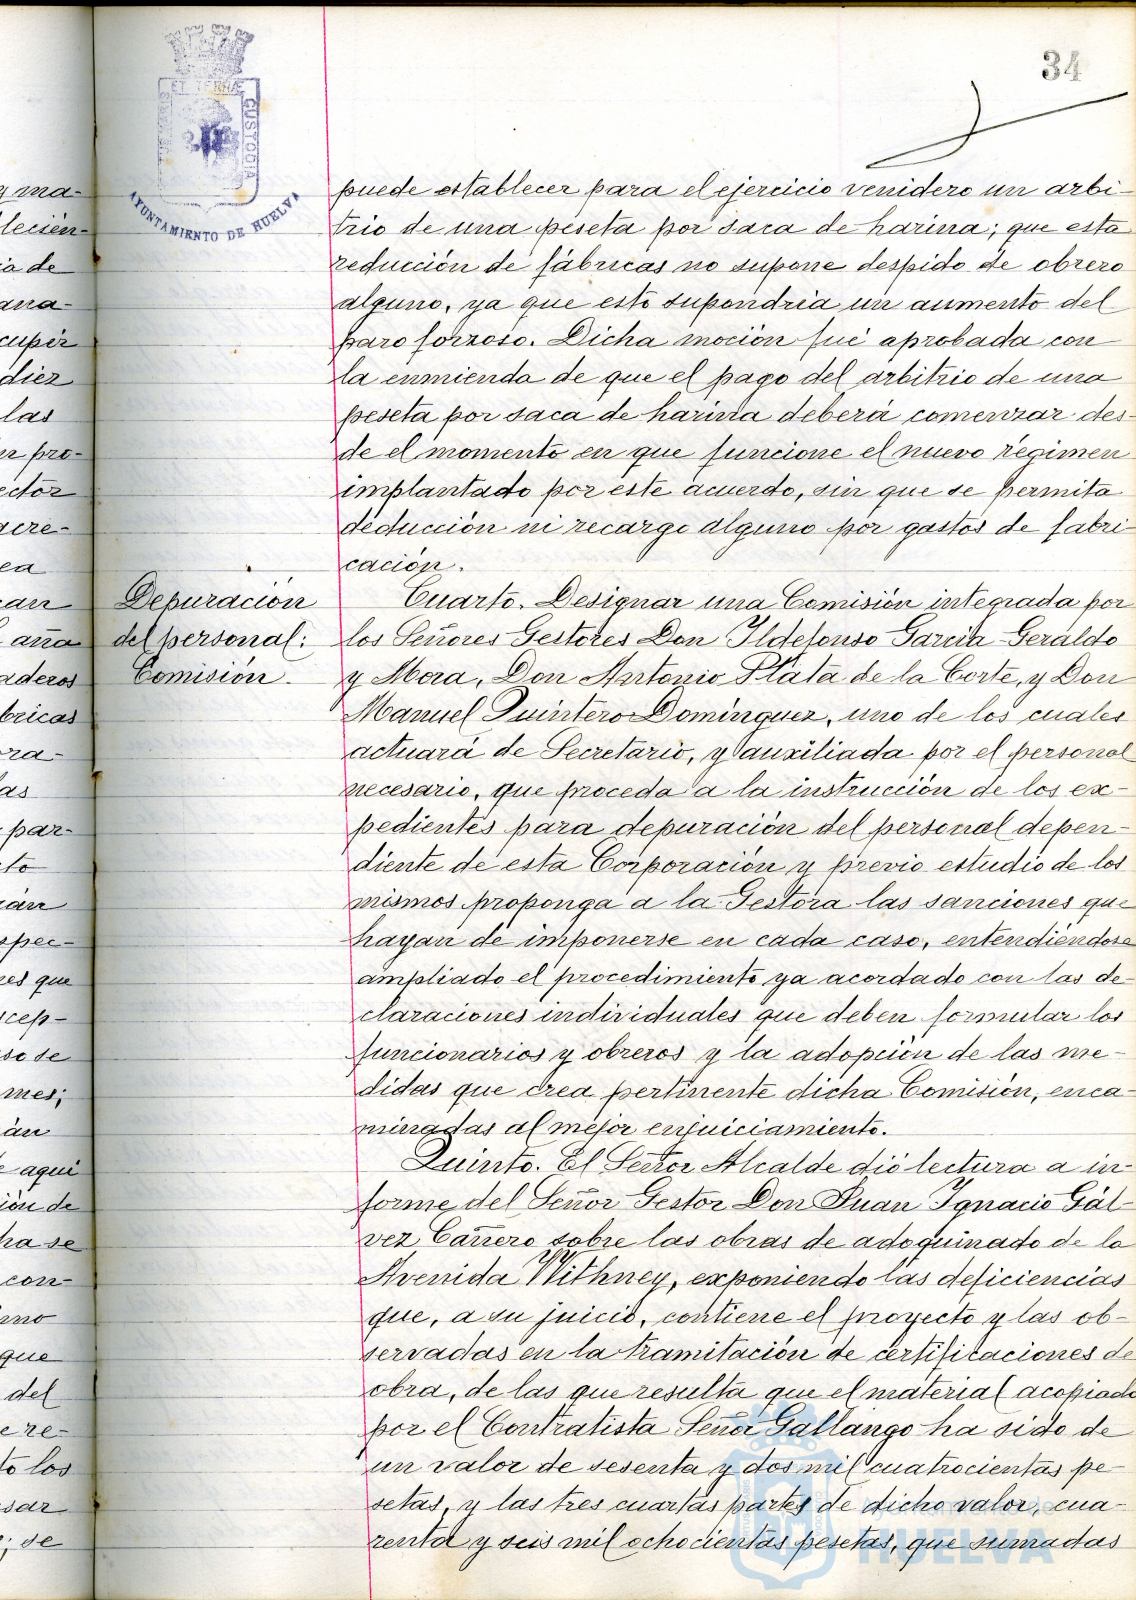 34
ET TERRÆ
CUSTODIA
AYUNTAMIENTO DE HUELVA
puede establecer para el ejercicio venidero un arbi-
trio de una peseta por saca de harina; que esta
reducción de fábricas no supone despido de obrero
alguno, ya que esto supondría un aumento del
paro forzoso. Dicha moción fué aprobada con
la enmienda de que el pago del arbitrio de una
peseta por saca de harina deberá comenzar des-
de el momento en que funcione el nuevo régimen
implantado por este acuerdo, sin que se permita
deducción ni recargo alguno por gastos de fabri-
cación.
Depuración
del personal:
Comisión.
Cuarto. Designar una Comisión integrada por
los Señores Gestores Don Ildefonso García Geraldo
y Mora, Don Antonio Plata de la Corte, y Don
Manuel Quintero Domínguez, uno de los cuales
actuará de Secretario, y auxiliada por el personal
necesario, que proceda a la instrucción de los ex-
pedientes para depuración del personal depen-
diente de esta Corporación y previo estudio de los
mismos proponga a la Gestora las sanciones que
hayan de imponerse en cada caso, entendiéndose
ampliado el procedimiento ya acordado con las de-
claraciones individuales que deben formular los
funcionarios y obreros y la adopción de las me-
didas que crea pertinente dicha Comisión, enca-
minadas al mejor enjuiciamiento.
Quinto. El Señor Alcalde dió lectura a in-
forme del Señor Gestor Don Juan Ignacio Gál-
vez Cañero sobre las obras de adoquinado de la
Avenida Withney, exponiendo las deficiencias
que, a su juicio, contiene el proyecto y las ob-
servadas en la tramitación de certificaciones de
obra, de las que resulta que el material acopiado
por el Contratista Señor Gallango ha sido de
un valor de sesenta y dos mil cuatrocientas pe-
setas, y las tres cuartas partes de dicho valor, cua-
renta y seis mil ochocientas pesetas, que sumadas
Ayuntamiento de
HUELVA
y ma-
lecién-
ia de
ana-
cuper
diez
las
n pro-
ector
acre-
ea
can
l aña
aderos
bricas
ora-
as
par-
cto
rán
spec-
nes que
scep-
uso se
mes;
rán
e aquí
ión de
ha se
con-
smo
que
del
e re-
to los
sar
; se